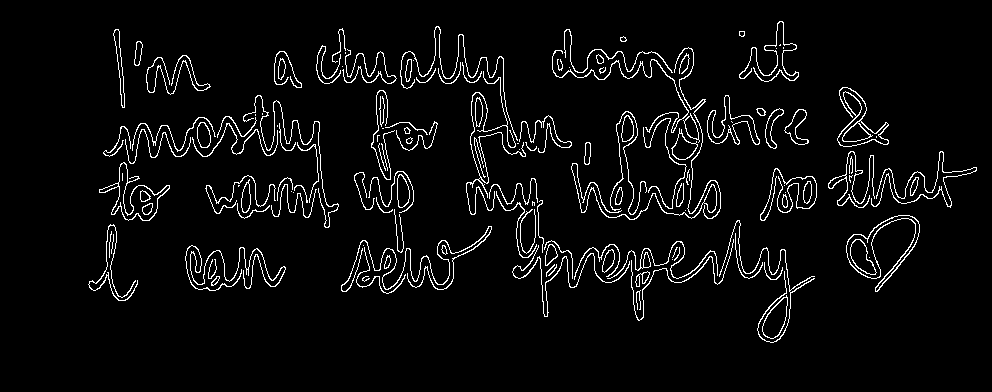 I'm actually doing it
mostly for fun, practice &
to warm up my hands so that
I can sew properly ♡